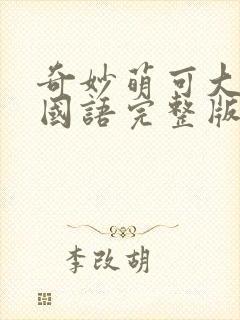 奇妙萌可大
國語完整版
李改胡